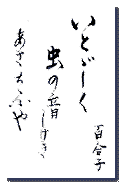 百合子
いとゞしく
虫の音
しげき
あさちふや